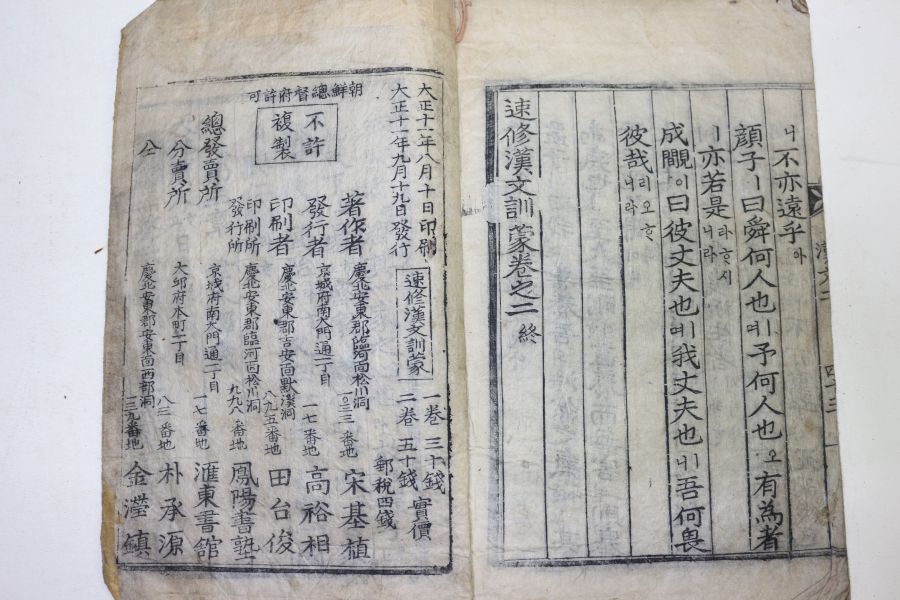 ㅣ 不亦遠乎 아
顔子ㅣ 曰舜何人也ㅖ 予何人也 오 有爲者
ㅣ 亦若是 라하시니라
成覵 이 曰彼丈夫也ㅖ 我丈夫也ㅣ 니 吾何畏
彼哉 리오하니라
速修漢文訓蒙卷之二 終
大正十一年八月十日 印刷
大正十一年九月十九日 發行
速修漢文訓蒙
一卷 三十錢
二卷 五十錢
實價
郵稅四錢
朝鮮總督府許可
不許複製
著作者 慶北安東郡臨河面松川洞 一〇三三番地 宋基植
發行者 京城府南大門通二丁目 一七番地 高裕相
印刷者 慶北安東郡吉安面默溪洞 八九五番地 田台俊
印刷所 慶北安東郡臨河面松川洞 九九八 鳳陽書塾
總發賣所 發行所 京城府南大門通二丁目 一七番地 滙東書舘
分賣所 大邱府本町二丁目 八三番地 朴承源
仝 慶北安東郡安東面西部洞 三九番地 金瀅鎮